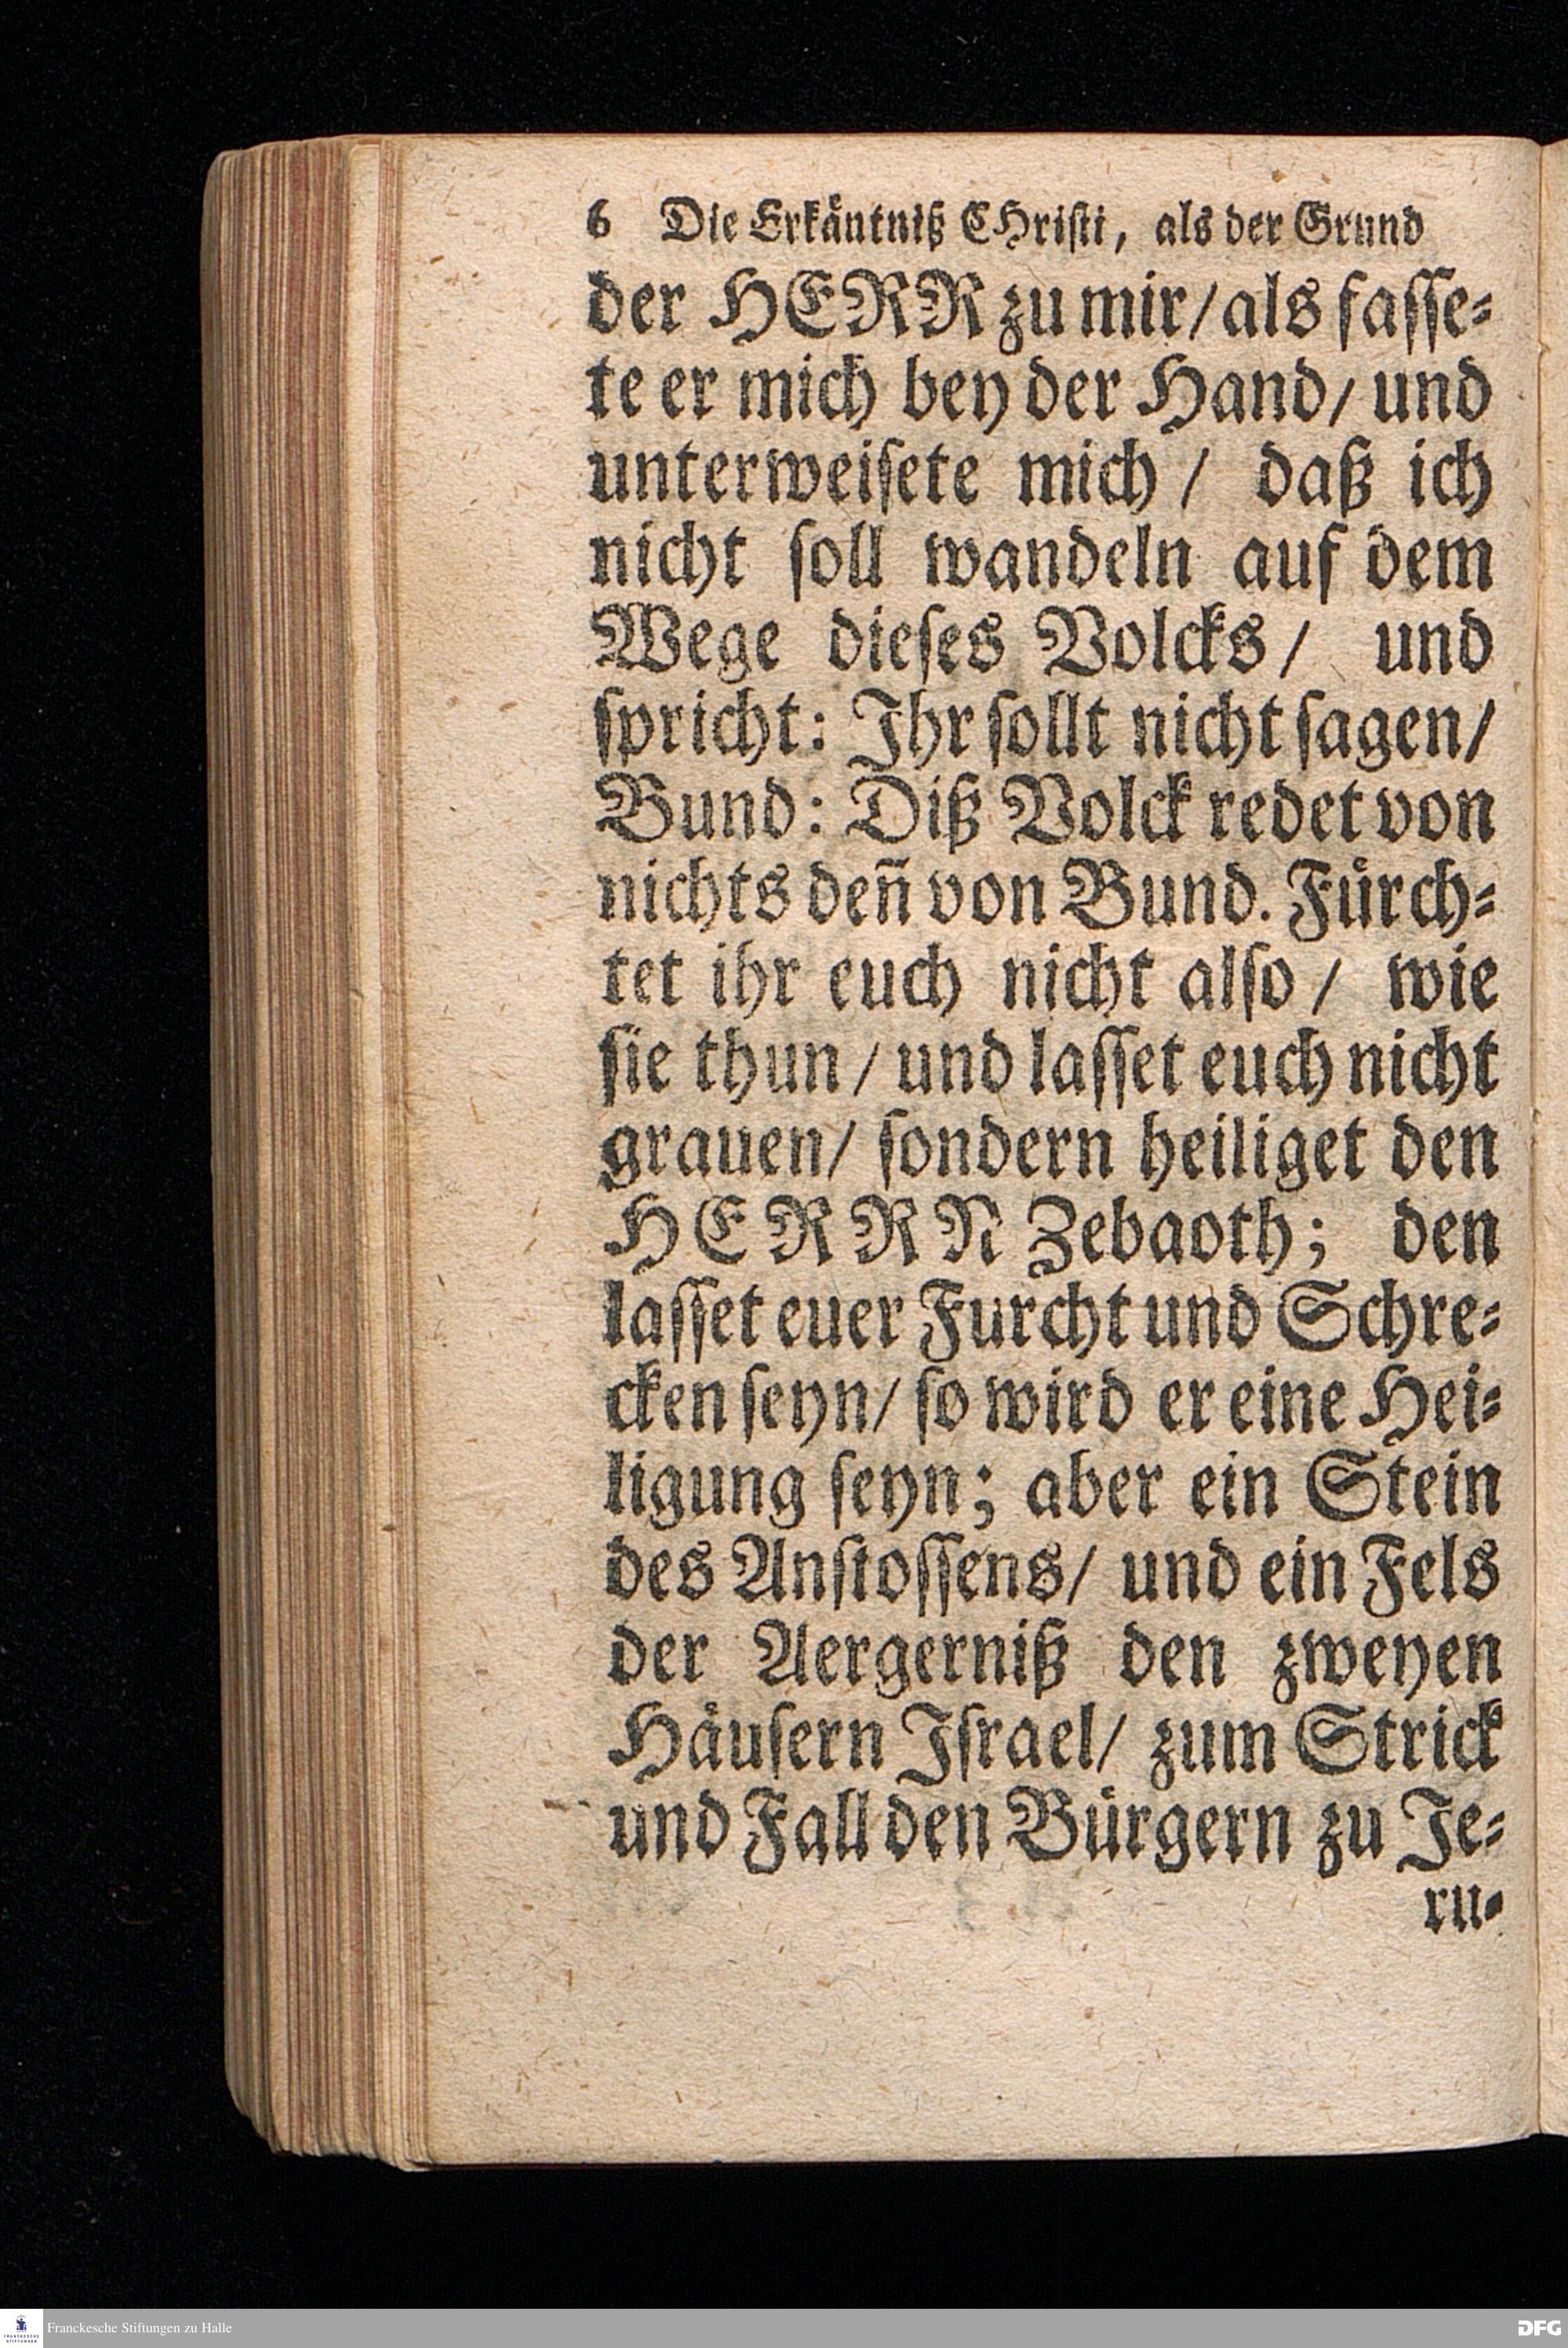 6 Die Erkäntniß CHriſti, als der Grund
der HERR zu mir/ als faſſe⸗
te er mich bey der Hand/ und
unterweiſete mich/ daß ich
nicht ſoll wandeln auf dem
Wege dieſes Volcks/ und
ſpricht: Ihr ſollt nicht ſagen/
Bund: Diß Volck redet von
nichts den̄ von Bund. Fürch⸗
tet ihr euch nicht alſo/ wie
ſie thun/ und laſſet euch nicht
grauen/ ſondern heiliget den
HERRN Zebaoth; den
laſſet euer Furcht und Schre⸗
cken ſeyn/ ſo wird er eine Hei⸗
ligung ſeyn; aber ein Stein
des Anſtoſſens/ und ein Fels
der Aergerniß den zweyen
Häuſern Iſrael/ zum Strick
und Fall den Bürgern zu Je⸗
ru⸗
FRANCKESCHE STIFTUNGEN
Franckesche Stiftungen zu Halle
DFG